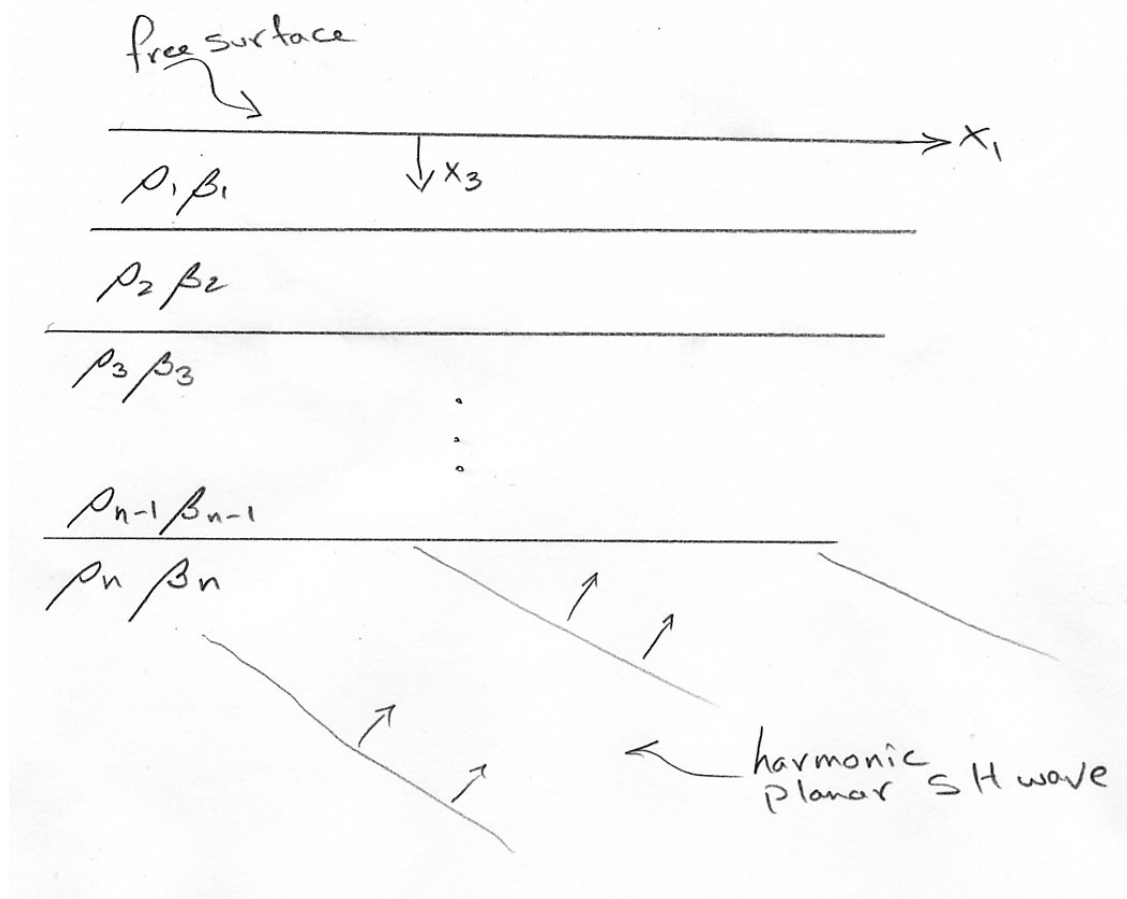 free surface
X₁
X₃
ρ₁ β₁
ρ₂ β₂
ρ₃ β₃
ρₙ₋₁ βₙ₋₁
ρₙ βₙ
harmonic
planar SH wave